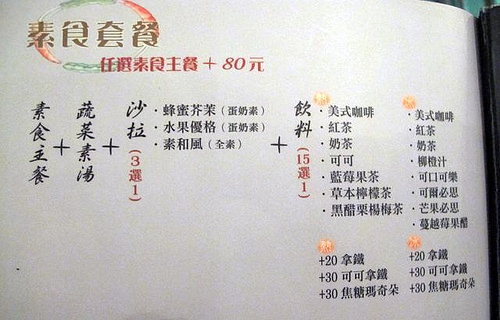 素食套餐
任選素食主餐＋80元
素食主餐
+
蔬菜素湯
+
沙拉(3選1)
·蜂蜜芥茉（蛋奶素）
·水果優格（蛋奶素）
·素和風（全素）
+
飲料(15選1)
熱
·美式咖啡
·紅茶
·奶茶
·可可
·藍莓果茶
·草本檸檬茶
·黑醋栗楊梅茶
熱
+20 拿鐵
+30 可可拿鐵
+30 焦糖瑪奇朵
冰
·美式咖啡
·紅茶
·奶茶
·柳橙汁
·可口可樂
·可爾必思
·芒果必思
·蔓越莓果醋
冰
+20 拿鐵
+30 可可拿鐵
+30 焦糖瑪奇朵